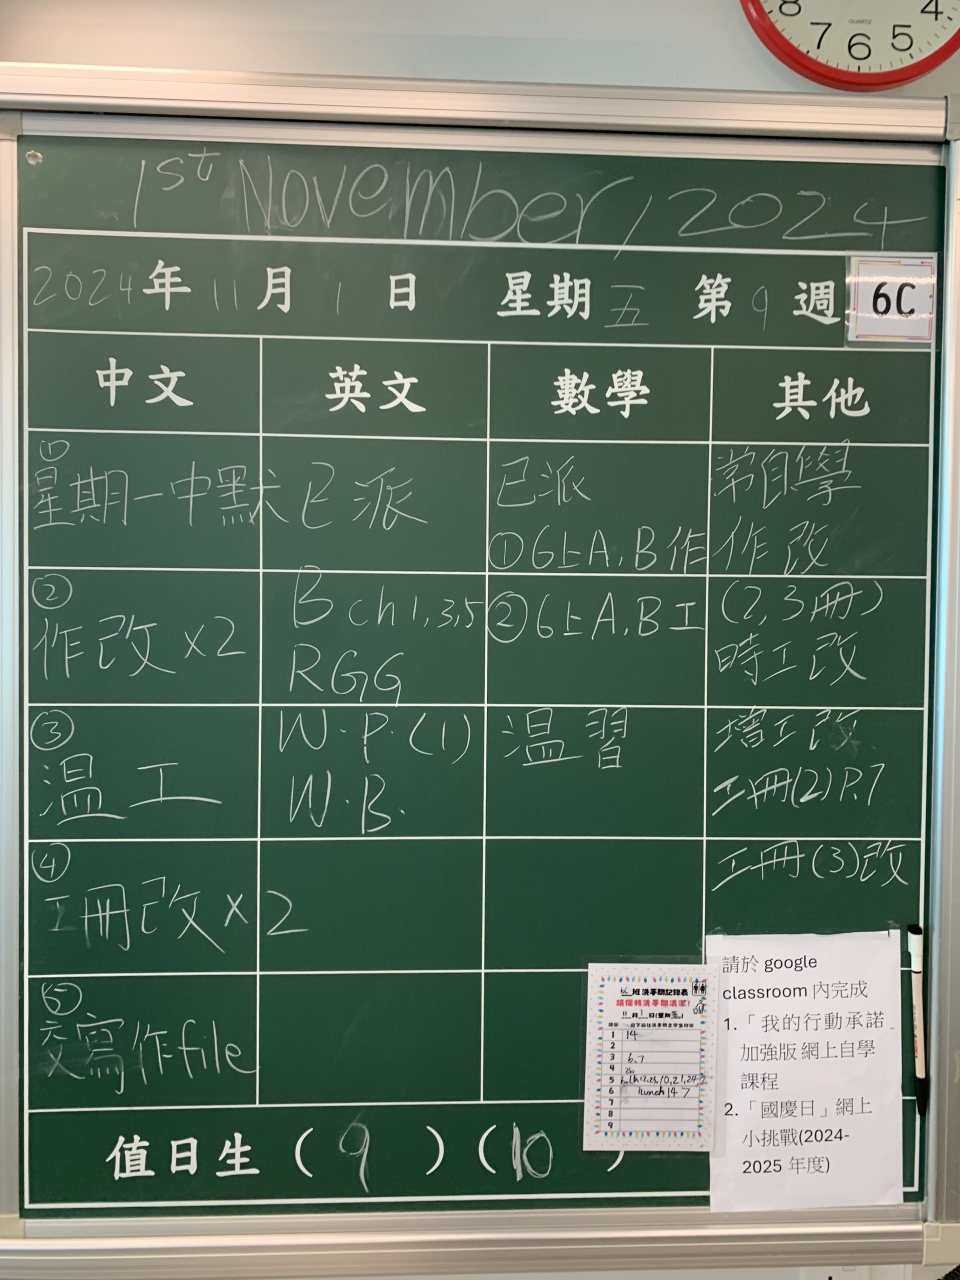 8 7 6 5 4
QUARTZ
1st November, 2024
2024年 11月 1日 星期五 第9週
6C
中文 英文 數學 其他
①
星期一中默
②
作改×2
③
温工
④
工冊改×2
⑤
交寫作file
已派
B ch 1,3,5
RGG
W.P.(1)
W.B.
已派
①6上A,B作
②6上A,B工
温習
常自學
作改
(2,3冊)
時工改
增工改
工冊(2)P.7
工冊(3)改
值日生(9)(10)
6C班洗手間記錄表
請保持洗手間清潔!
11月1日(星期五)
1 14
2
3 6.7
4
5
6 lunch 14 7
7
8
9
請於 google
classroom 內完成
1.「我的行動承諾
加強版 網上自學
課程
2.「國慶日」網上
小挑戰(2024-
2025 年度)